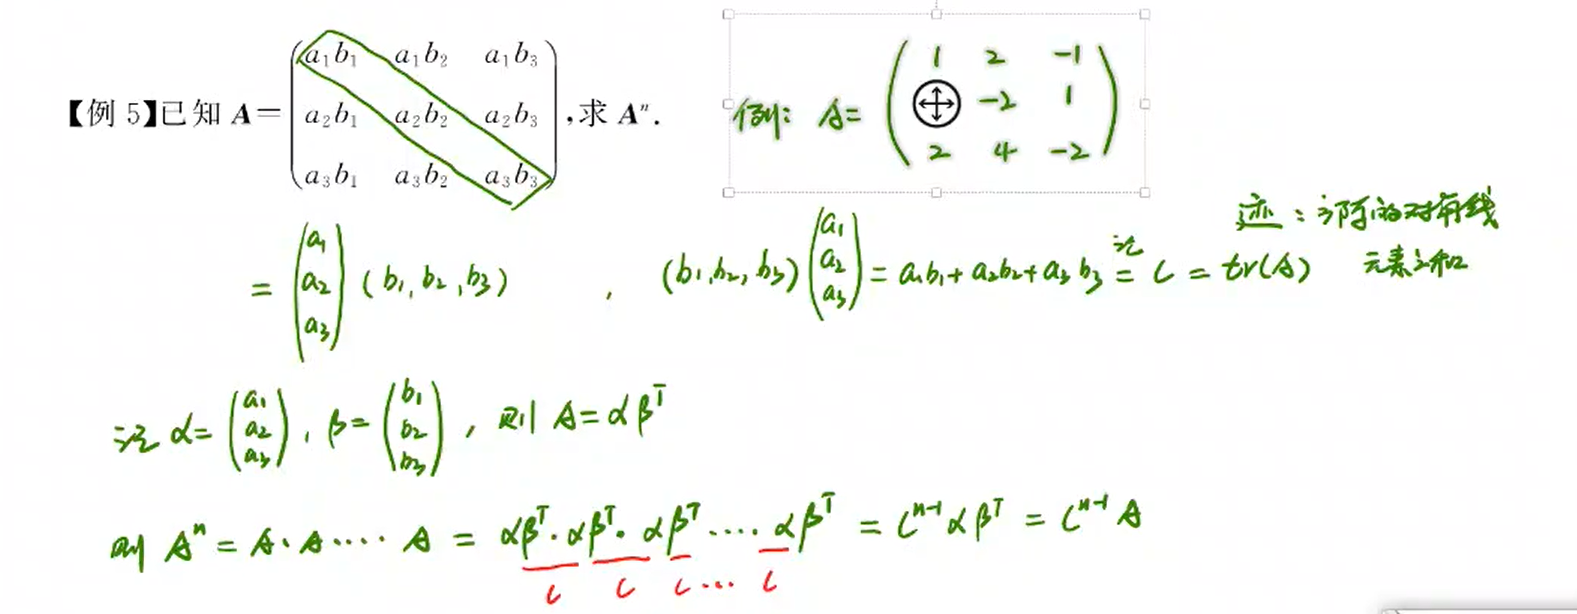 【例 5】已知 A = ( a₁b₁ a₁b₂ a₁b₃ ; a₂b₁ a₂b₂ a₂b₃ ; a₃b₁ a₃b₂ a₃b₃ ), 求 Aⁿ.
例: A = ( 1 2 -1 ; -2 1 ; 2 4 -2 )
= ( a₁ ; a₂ ; a₃ ) ( b₁, b₂, b₃ ) , ( b₁, b₂, b₃ ) ( a₁ ; a₂ ; a₃ ) = a₁b₁ + a₂b₂ + a₃b₃ 记= C = tr(A)
迹: 方阵的对角线
元素之和
记 α = ( a₁ ; a₂ ; a₃ ), β = ( b₁ ; b₂ ; b₃ ), 则 A = αβᵀ
则 Aⁿ = A · A ···· A = αβᵀ · αβᵀ · αβᵀ ···· αβᵀ = Cⁿ⁻¹ αβᵀ = Cⁿ⁻¹ A
C C C ... C